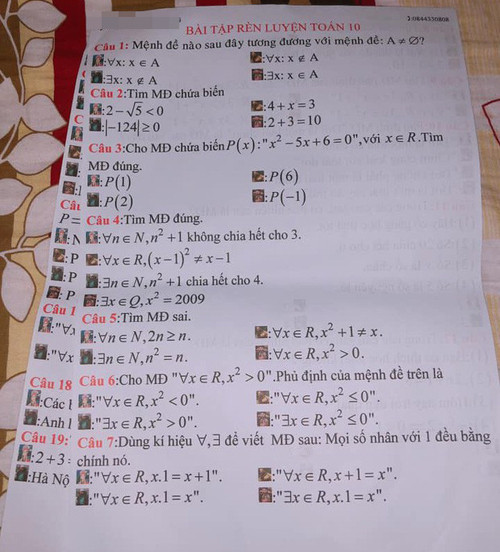 2:0844330808
BÀI TẬP RÈN LUYỆN TOÁN 10
Câu 1: Mệnh đề nào sau đây tương đương với mệnh đề: A ≠ ∅?
:∀x: x ∈ A :∀x: x ∉ A
:∃x: x ∉ A :∃x: x ∈ A
Câu 2:Tìm MĐ chứa biến
:2−√5 < 0 :4 + x = 3
:|−124| ≥ 0 :2 + 3 = 10
Câu 3:Cho MĐ chứa biến P(x):"x² − 5x + 6 = 0",với x ∈ R.Tìm
MĐ đúng.
:P(1) :P(6)
:P(2) :P(−1)
Câu 4:Tìm MĐ đúng.
:∀n ∈ N, n² + 1 không chia hết cho 3.
:∀x ∈ R, (x − 1)² ≠ x − 1
:∃n ∈ N, n² + 1 chia hết cho 4.
:∃x ∈ Q, x² = 2009
Câu 5:Tìm MĐ sai.
:∀n ∈ N, 2n ≥ n. :∀x ∈ R, x² + 1 ≠ x.
:∃n ∈ N, n² = n. :∀x ∈ R, x² > 0.
Câu 6:Cho MĐ "∀x ∈ R, x² > 0".Phủ định của mệnh đề trên là
:"∀x ∈ R, x² < 0". :"∀x ∈ R, x² ≤ 0".
:"∃x ∈ R, x² > 0". :"∃x ∈ R, x² ≤ 0".
Câu 7:Dùng kí hiệu ∀,∃ để viết MĐ sau: Mọi số nhân với 1 đều bằng
chính nó.
:"∀x ∈ R, x.1 = x + 1". :"∀x ∈ R, x + 1 = x".
:"∀x ∈ R, x.1 = x". :"∃x ∈ R, x.1 = x".
P =
:N
:P
:P
:P
Câu 1
:"∀x
Câu 18
:Các
:Anh
Câu 19:
:2 + 3
:Hà Nộ